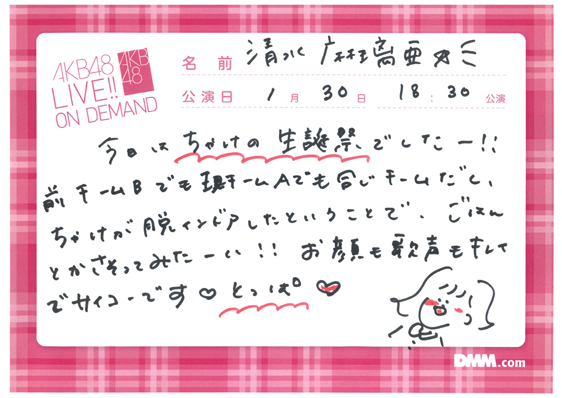 AKB48
LIVE!!
ON DEMAND
AKB
48
名前 清水 麻璃亜
公演日 1月 30日 18:30 公演
今日は ちゃけの 生誕祭でしたー!!
前チームBでも現チームAでも同じチームだし、
ちゃけが脱インドアしたということで、ごはん
とかさそってみたーい!! お顔も歌声もキレイ
でサイコーです♡ とっぱ ♥
DMM.com